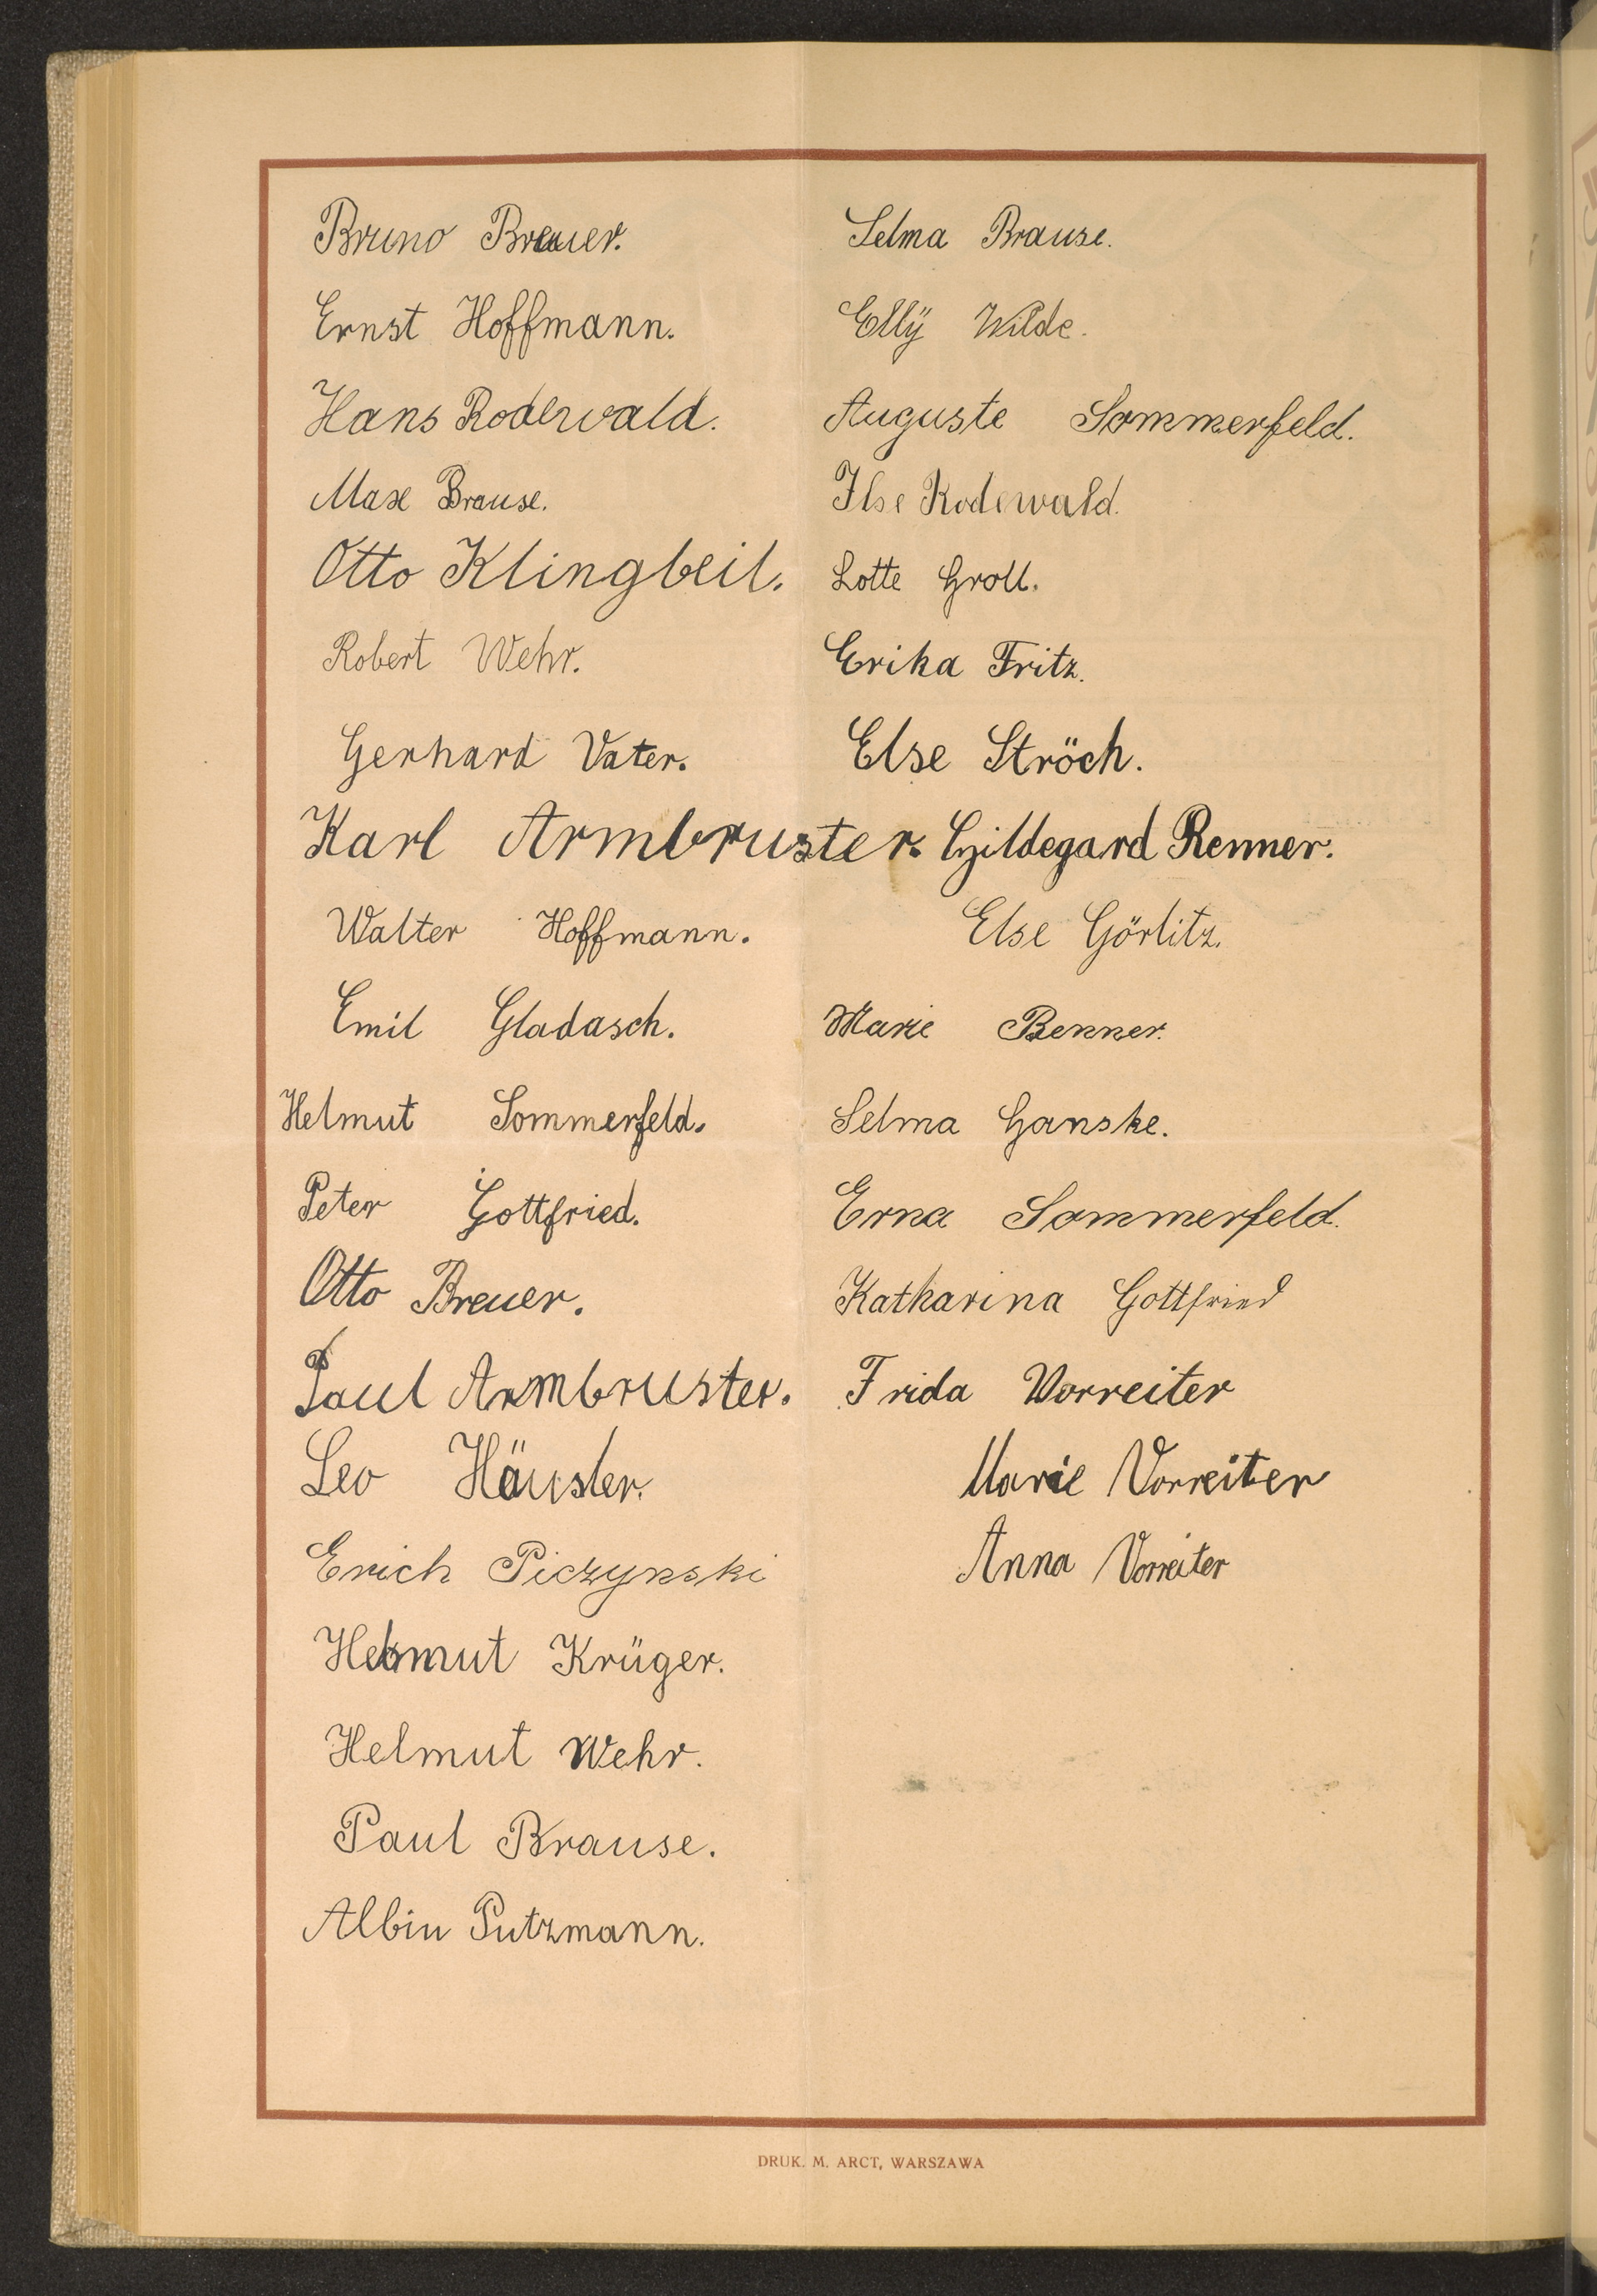 Bruno Breuer.
Ernst Hoffmann.
Hans Rodewald.
Max Brause.
Otto Klingbeil.
Robert Wehr.
Gerhard Vater.
Karl Armbruster.
Walter Hoffmann.
Emil Gladasch.
Helmut Sommerfeld.
Peter Gottfried.
Otto Breuer.
Paul Armbruster.
Leo Häusler.
Erich Piczynski
Helmut Krüger.
Helmut Wehr.
Paul Brause.
Albin Putzmann.
Selma Brause.
Elly Wilde.
Auguste Sommerfeld.
Ilse Rodewald.
Lotte Groll.
Erika Fritz.
Else Ströch.
Hildegard Renner.
Else Görlitz.
Marie Benner.
Selma Ganske.
Erna Sommerfeld.
Katharina Gottfried
Frida Vorreiter
Marie Vorreiter
Anna Vorreiter
DRUK. M. ARCT, WARSZAWA